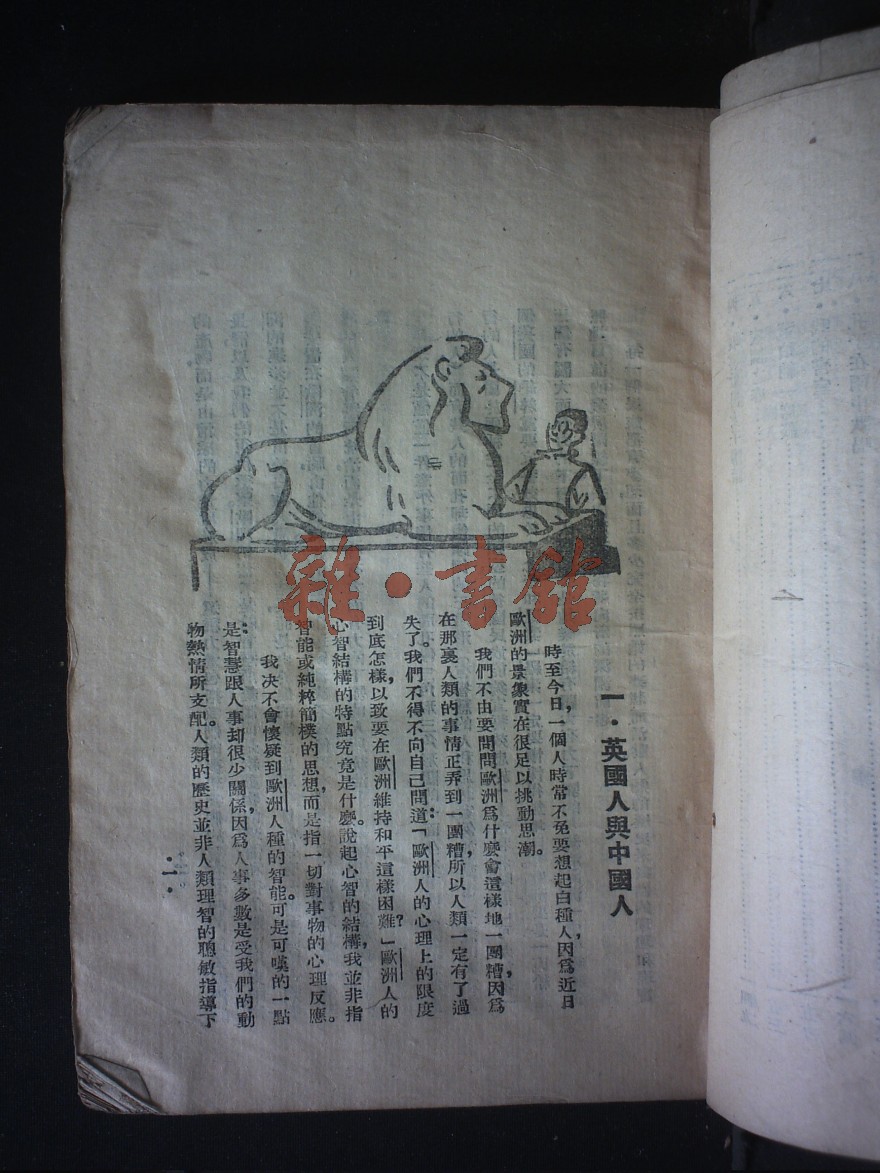 一・英國人與中國人
時至今日，一個人時常不免要想起白種人，因爲近日
歐洲的景象實在很足以挑動思潮。
我們不由要問問歐洲爲什麼會這樣地一團糟，因爲
在那裏人類的事情正弄到一團糟，所以人類一定有了過
失了。我們不得不向自己問道：「歐洲人的心理上的限度
到底怎樣，以致要在歐洲維持和平這樣困難？」歐洲人的
心智結構的特點究竟是什麼。說起心智的結構，我並非指
智能或純粹簡樸的思想，而是指一切對事物的心理反應。
我决不會懷疑到歐洲人種的智能。可是可嘆的一點
是：智慧跟人事却很少關係，因爲人事多數是受我們的動
物熱情所支配。人類的歷史並非人類理智的聰敏指導下
・一・
雜・書館